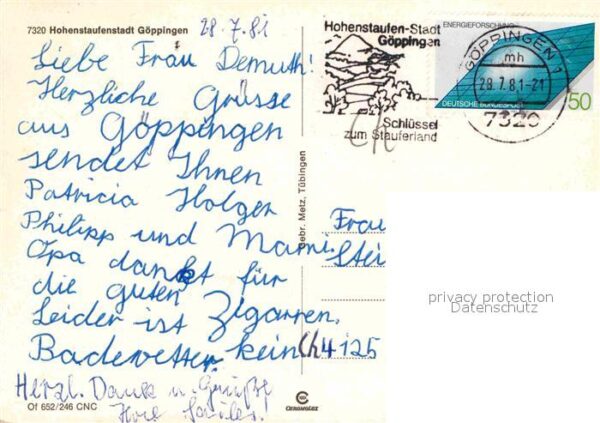 7320 Hohenstaufenstadt Göppingen
28.7.81
Liebe Frau Demuth!
Herzliche Grüsse
aus Göppingen
sendet Ihnen
Patricia Holger
Philipp und Mami
Opa dankt für
die guten Zigarren.
Leider ist
Badewetter. kein
Herzl. Dank u. Grüße
Ihre
Of 652/246 CNC
Gebr. Metz, Tübingen
CHROMOLUX
Hohenstaufen-Stadt
Göppingen
Schlüssel
zum Stauferland
ENERGIEFORSCHUNG
DEUTSCHE BUNDESPOST
50
GÖPPINGEN 1
mh
28.7.81-21
7320
Frau
Stei
privacy protection
Datenschutz
Ch4125